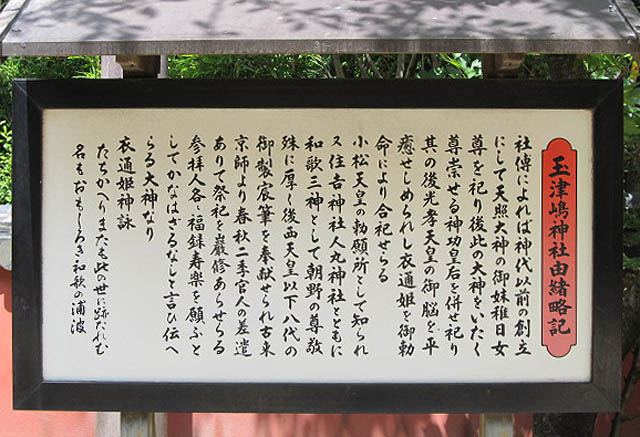 玉津嶋神社由緒略記
社傳によれば神代以前の創立
にして天照大神の御妹稚日女
尊を祀り後此の大神をいたく
尊崇せる神功皇后を併せ祀り
其の後光孝天皇の御脳を平
癒せしめられし衣通姫を御勅
命により合祀せらる
小松天皇の勅願所として知られ
又住吉神社人丸神社とともに
和歌三神として朝野の尊敬
殊に厚く後西天皇以下八代の
御製宸筆を奉献せられ古東
京師より春秋二季官人の差遣
ありて祭祀を厳修あらせらる
参拝人各〻福録寿楽を願ふと
してかなはざるなしと言ひ伝へ
らる大神なり
衣通姫神詠
たちかへりまたも此の世に跡だれむ
名もおもしろき和歌の浦波